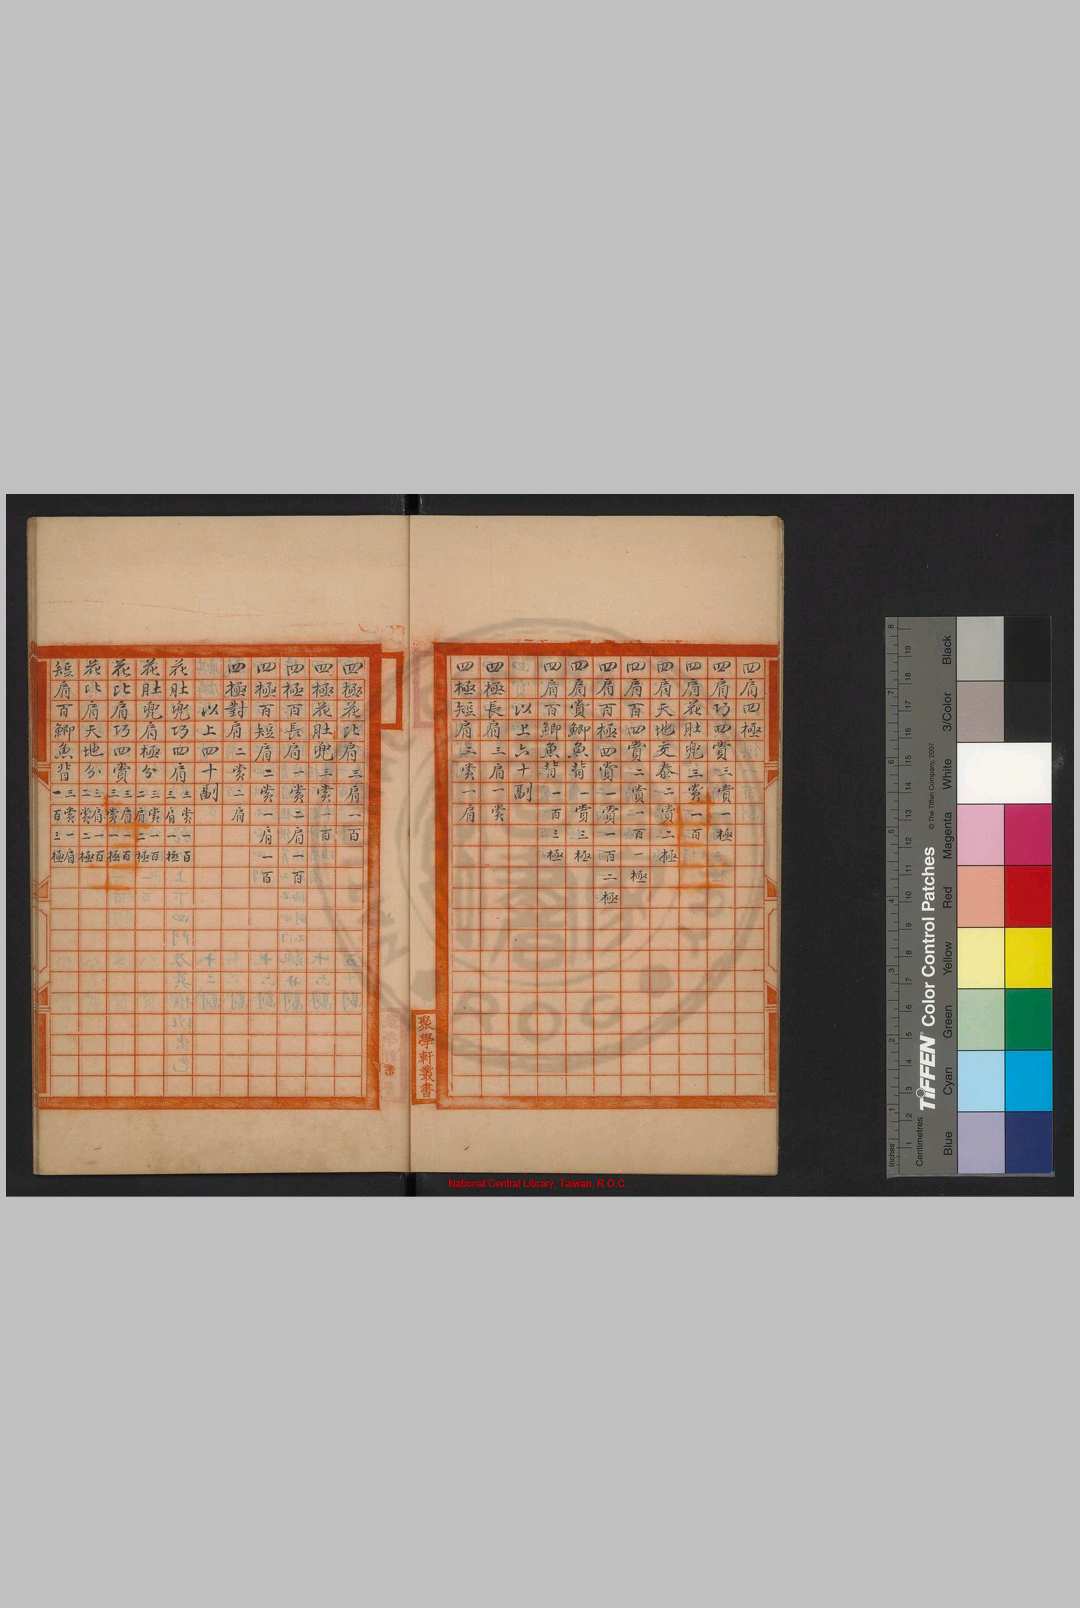 四肩四極
四肩巧四賞三賞一極
四肩花肚兜三賞一百
四肩天地交泰二賞二極
四肩百四賞二賞一百一極
四肩百極四賞一賞一百二極
四肩賞鯽魚背一賞三極
四肩百鯽魚背一百三極
以上六十副
四極長肩三肩一賞
四極短肩三賞一肩
聚學軒叢書
四極花比肩三肩一百
四極花肚兜三賞一百
四極百長肩一賞二肩一百
四極百短肩二賞一肩一百
四極對肩二賞二肩
以上四十副
花肚兜巧四肩三賞一百三肩一極
花肚兜肩極分三賞一百二肩二極
花比肩巧四賞三肩一百三賞一極
花比肩天地分三肩一百二賞二極
短肩百鯽魚背三賞一肩一百三極
National Central Library, Taiwan, R.O.C
Inches
Centimetres
TIFFEN® Color Control Patches
© The Tiffen Company, 2007
Blue
Cyan
Green
Yellow
Red
Magenta
White
3/Color
Black